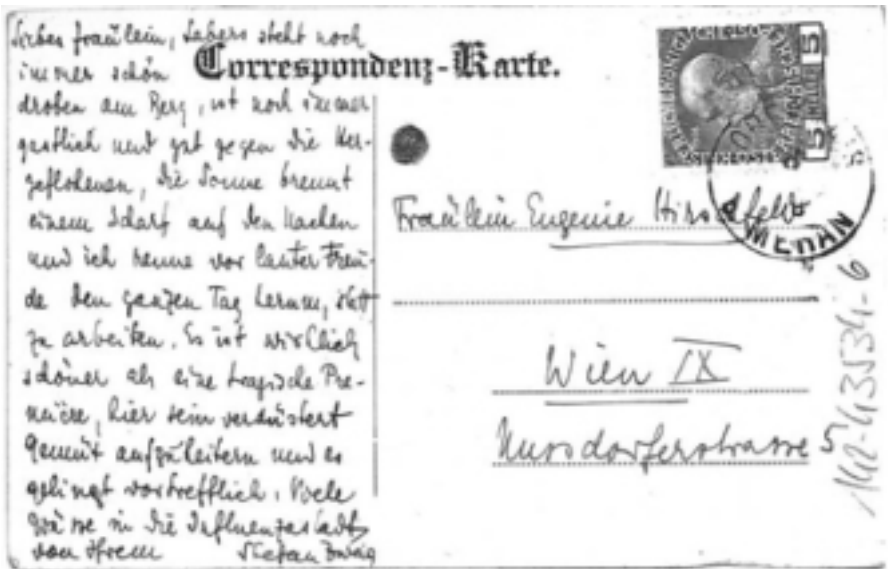 Correspondenz-Karte.
Liebes Fräulein, Labers steht noch
immer schön
droben am Berg, ist noch immer
gastlich und gut gegen die Her-
geflohenen, die Sonne brennt
einem scharf auf den Nacken
und ich renne vor lauter Freu-
de den ganzen Tag herum, statt
zu arbeiten. Es ist wirklich
schöner als eine tragische Pre-
mière, hier sein verdüstert
Gemüt aufzuheitern und es
gelingt vortrefflich. Viele
Grüsse in die Influenzastadt
von Ihrem Stefan Zweig
5 5
MERAN
Fräulein Eugenie Hirschfeld
Wien IX
Nussdorferstrasse 5